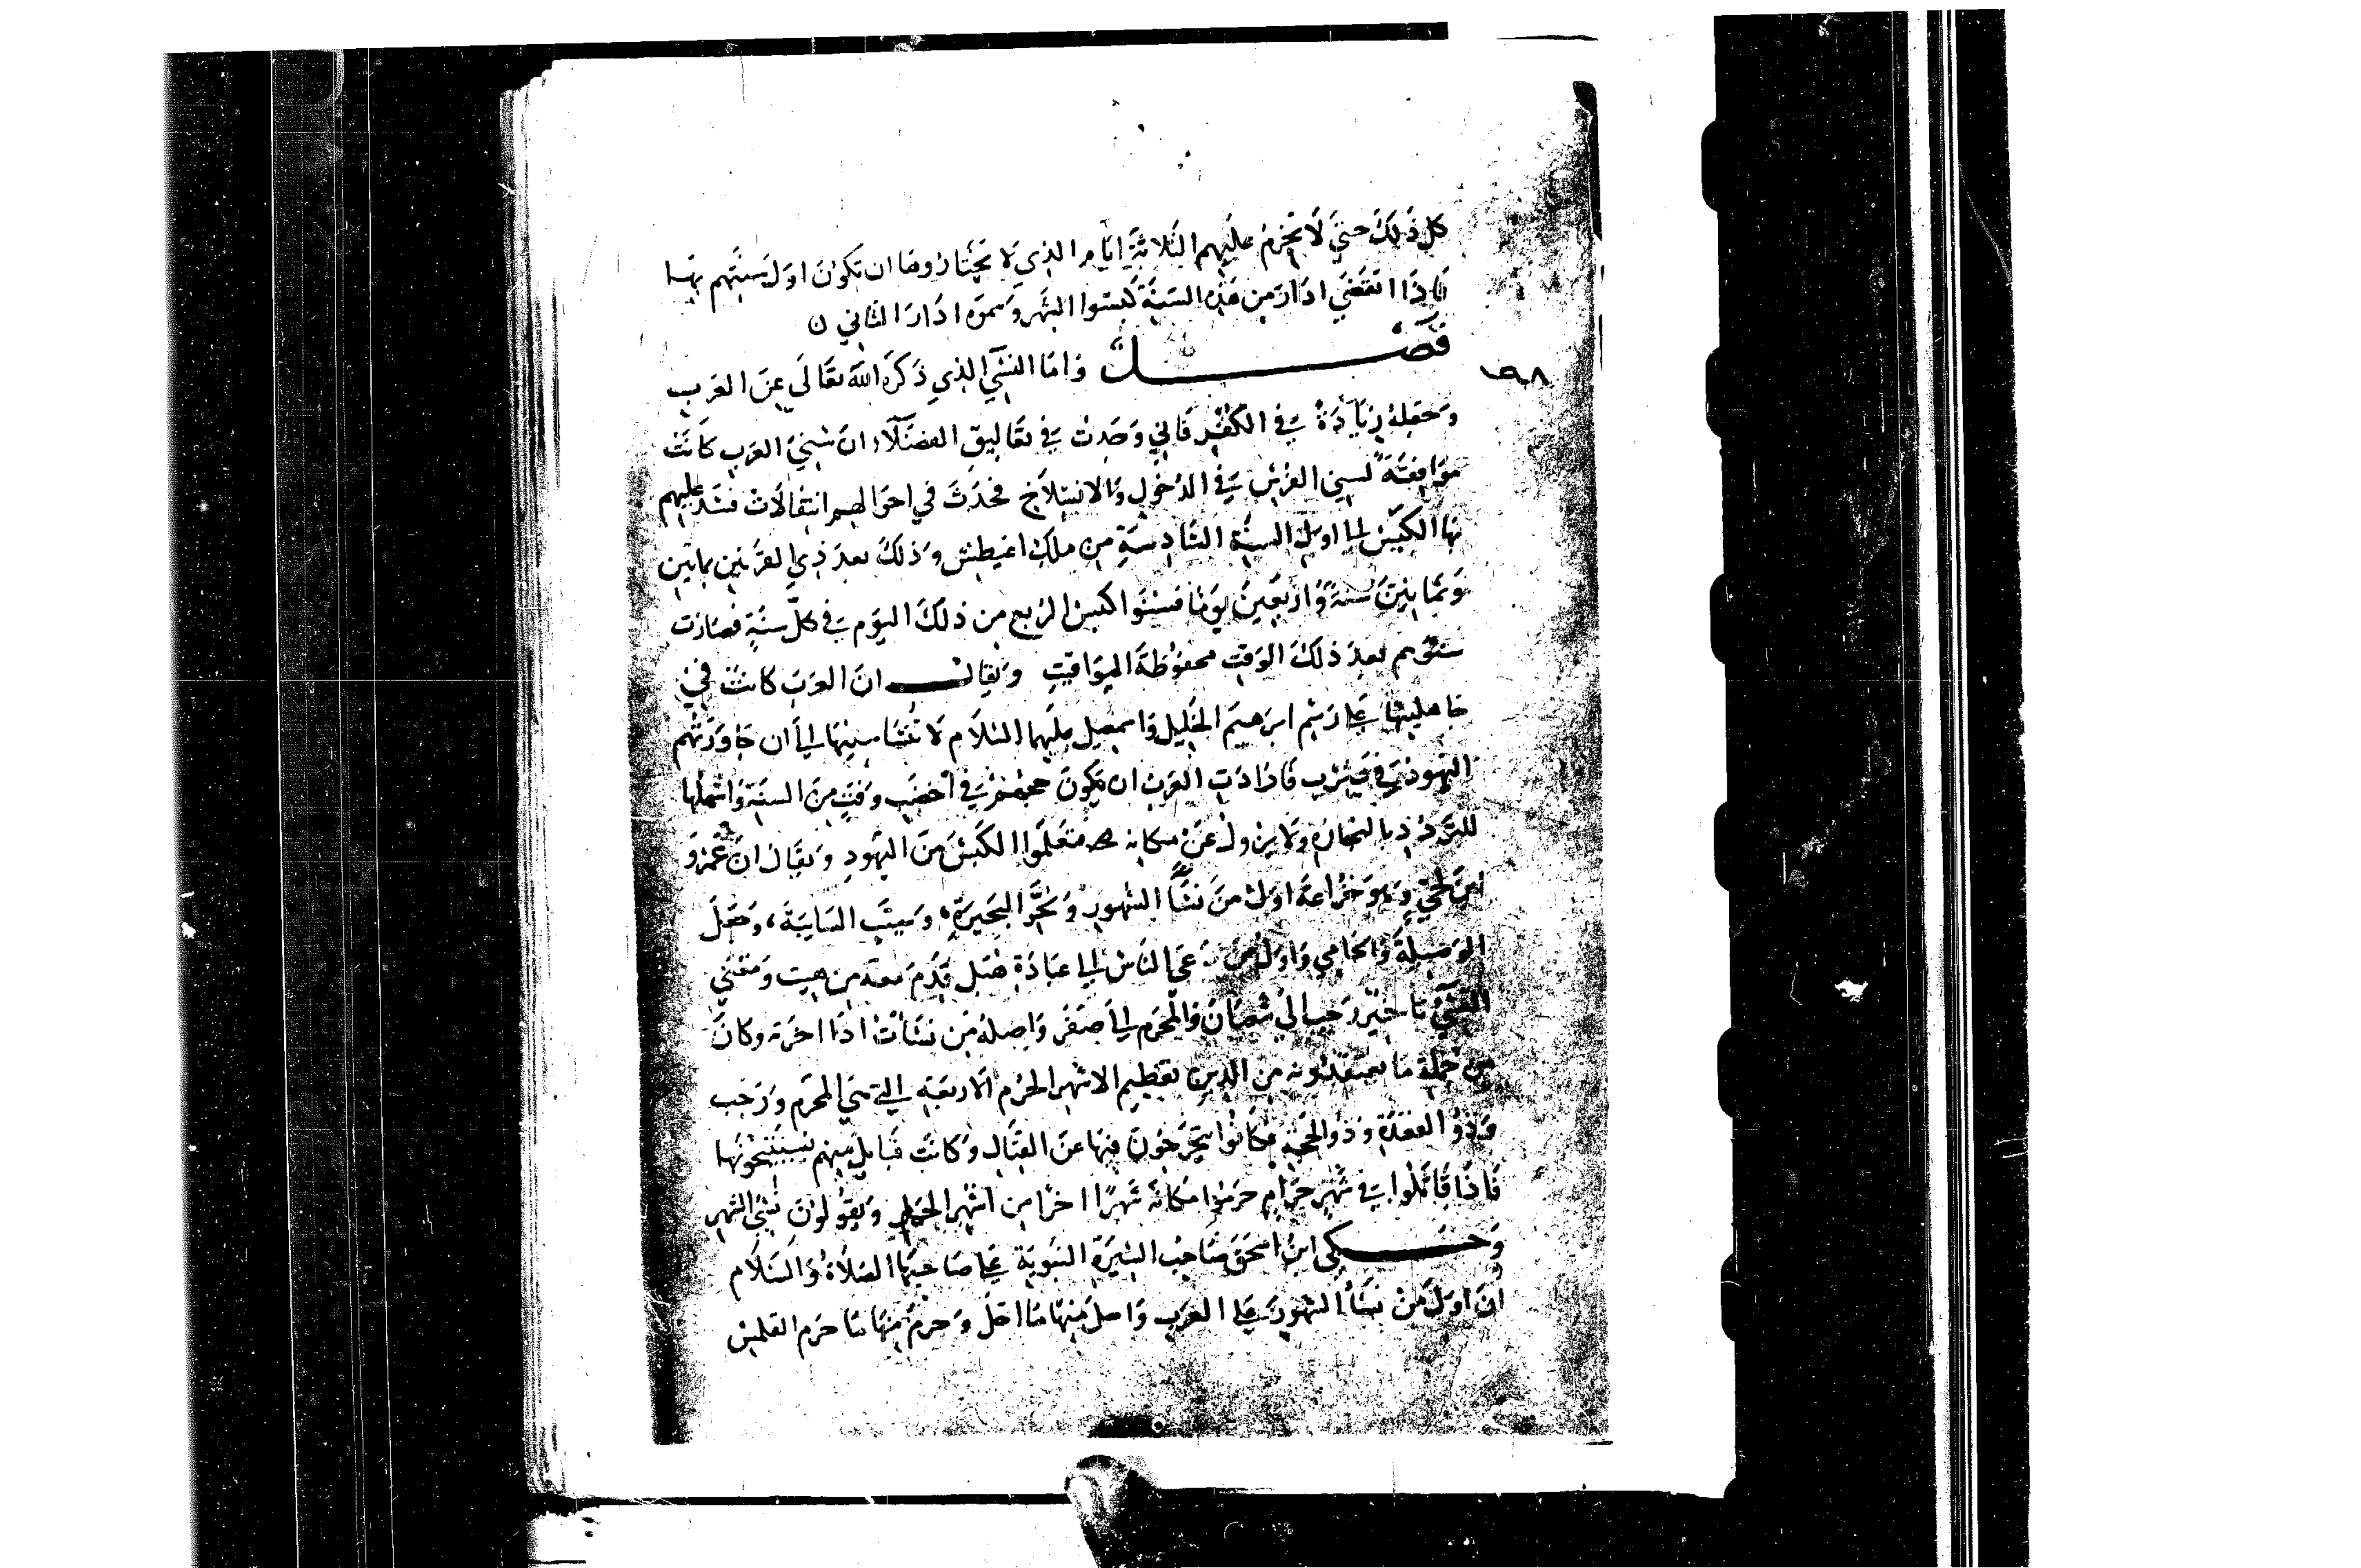 كل ذلك حتى لا تخرم عليهم الثلاثة ايام الذي لا يختاروها ان تكون اول سنتهم بها
فاذا انقضى ادار من هذه السنة كبسوا الشهر وسموه ادار الثاني ن
فصل واما النسيّ الذي ذكره الله تعالى عن العرب
١٩٨
وجعله زيادة في الكفر فاني وجدت في تعاليق الفضلاء ان سني العرب كانت
موافقة لسني الفرس في الدخول والانسلاخ فحدث في احوالهم انتقالات فسد عليهم
بها الكبس الى اول السنة السادسة من ملك اغيطش وذلك بعد ذي القرنين بمايتين
وثمانين سنة واربعين يوما فسنوا كبس الربع من ذلك اليوم في كل سنة فصارت
سنوهم بعد ذلك الوقت محفوظة المواقيت ويقال ان العرب كانت في
جاهليتها على رسم ابرهيم الخليل واسمعيل عليهما السلام لا تنسا سنيها الى ان جاورتهم
اليهود في يثرب فارادت العرب ان يكون حجهم في اخصب وقت من السنة واسهلها
للتردد بالتجارة ولا يزول عن مكانه فتعلموا الكبس من اليهود ويقال ان عمرو
ابن لحي وهو خزاعة اول من نسأ الشهور وبحّر البحيرة، وسيب السايبة، وجعل
الوصيلة والحامي واول من دعى الناس الى عبادة هبل قدم معه من هيت ومعنى
النسيّ تاخير رجب الى شعبان والمحرم الى صفر واصله من نسأت اذا اخرته وكان
من جملة ما يعتقدونه من الدين تعظيم الاشهر الحرم الاربعة التي هي المحرم ورجب
وذو القعدة وذو الحجة فكانوا يتحرجون فيها عن القتال وكانت قبايل منهم يستبيحونها
فاذا قاتلوا في شهر حرام حرموا مكانه شهرا اخرا من اشهر الحل ويقولون نسئ الشهر
وحكى ابن اسحق صاحب السيرة النبوية على صاحبها الصلاة والسلام
ان اول من نسأ الشهور على العرب واحل منها ما احل وحرم منها ما حرم القلمس